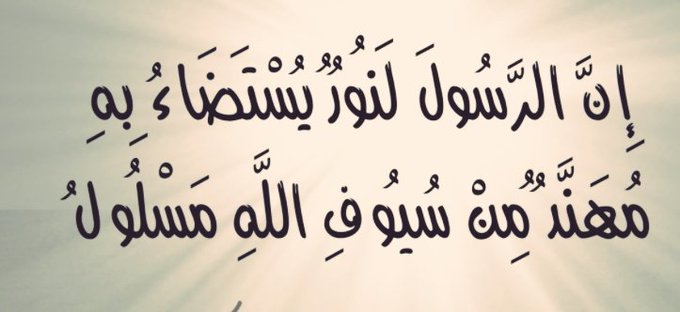 إِنَّ الرَّسُولَ لَنُورٌ يُسْتَضَاءُ بِهِ
مُهَنَّدٌ مِنْ سُيُوفِ اللَّهِ مَسْلُولُ